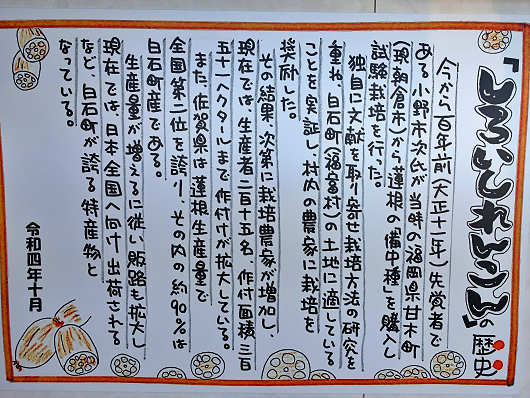 「しろいしれんこん」の歴史
今から百年前(大正十一年)先覚者で
ある小野市次氏が当時の福岡県甘木町
(現朝倉市)から蓮根の「備中種」を購入し
試験栽培を行った。
独自に文献を取り寄せ栽培方法の研究を
重ね、白石町(福富村)の土地に適している
ことを実証し村内の農家に栽培を
奨励した。
その結果、次第に栽培農家が増加し、
現在では、生産者二百十五名、作付面積三百
五十一ヘクタールまで作付けが拡大している。
また、佐賀県は蓮根生産量で
全国第二位を誇り、その内の約90%は
白石町産である。
生産量が増えるに従い販路も拡大し
現在では、日本全国へ向け出荷される
など、白石町が誇る特産物と
なっている。
令和四年十月